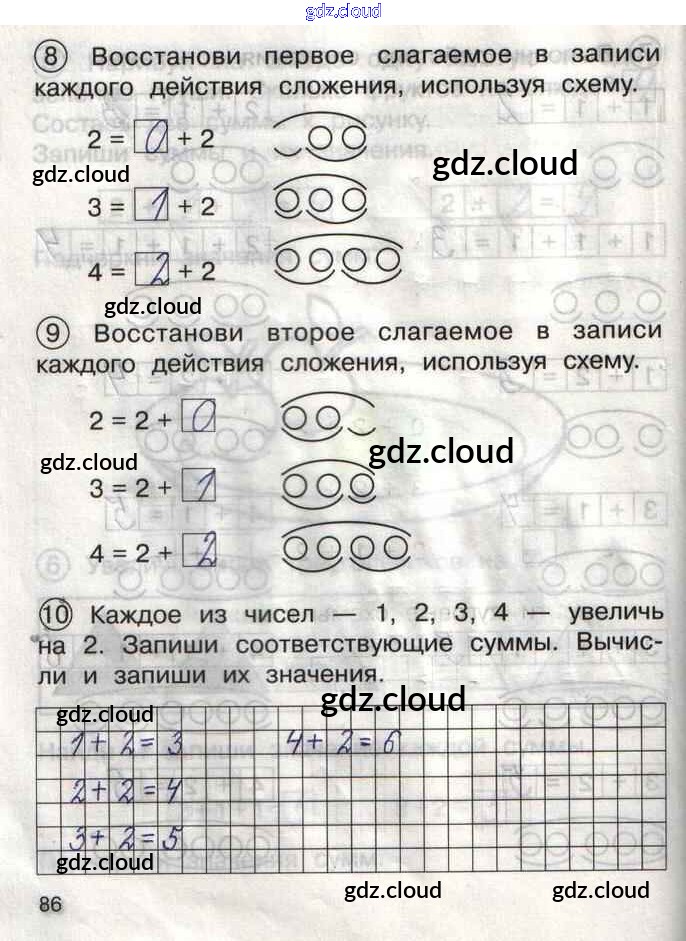 gdz.cloud
8 Восстанови первое слагаемое в записи
каждого действия сложения, используя схему.
2 = 0 + 2
gdz.cloud
gdz.cloud
3 = 1 + 2
4 = 2 + 2
gdz.cloud
9 Восстанови второе слагаемое в записи
каждого действия сложения, используя схему.
2 = 2 + 0
gdz.cloud
gdz.cloud
3 = 2 + 1
4 = 2 + 2
10 Каждое из чисел — 1, 2, 3, 4 — увеличь
на 2. Запиши соответствующие суммы. Вычис-
ли и запиши их значения.
gdz.cloud
gdz.cloud
1 + 2 = 3 4 + 2 = 6
2 + 2 = 4
3 + 2 = 5
gdz.cloud
86
gdz.cloud
gdz.cloud